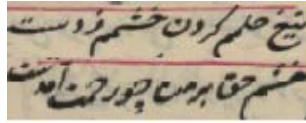 تیغ حلمم گردن خشمم زدست
خشم حق بر من چو رحمت آمدست